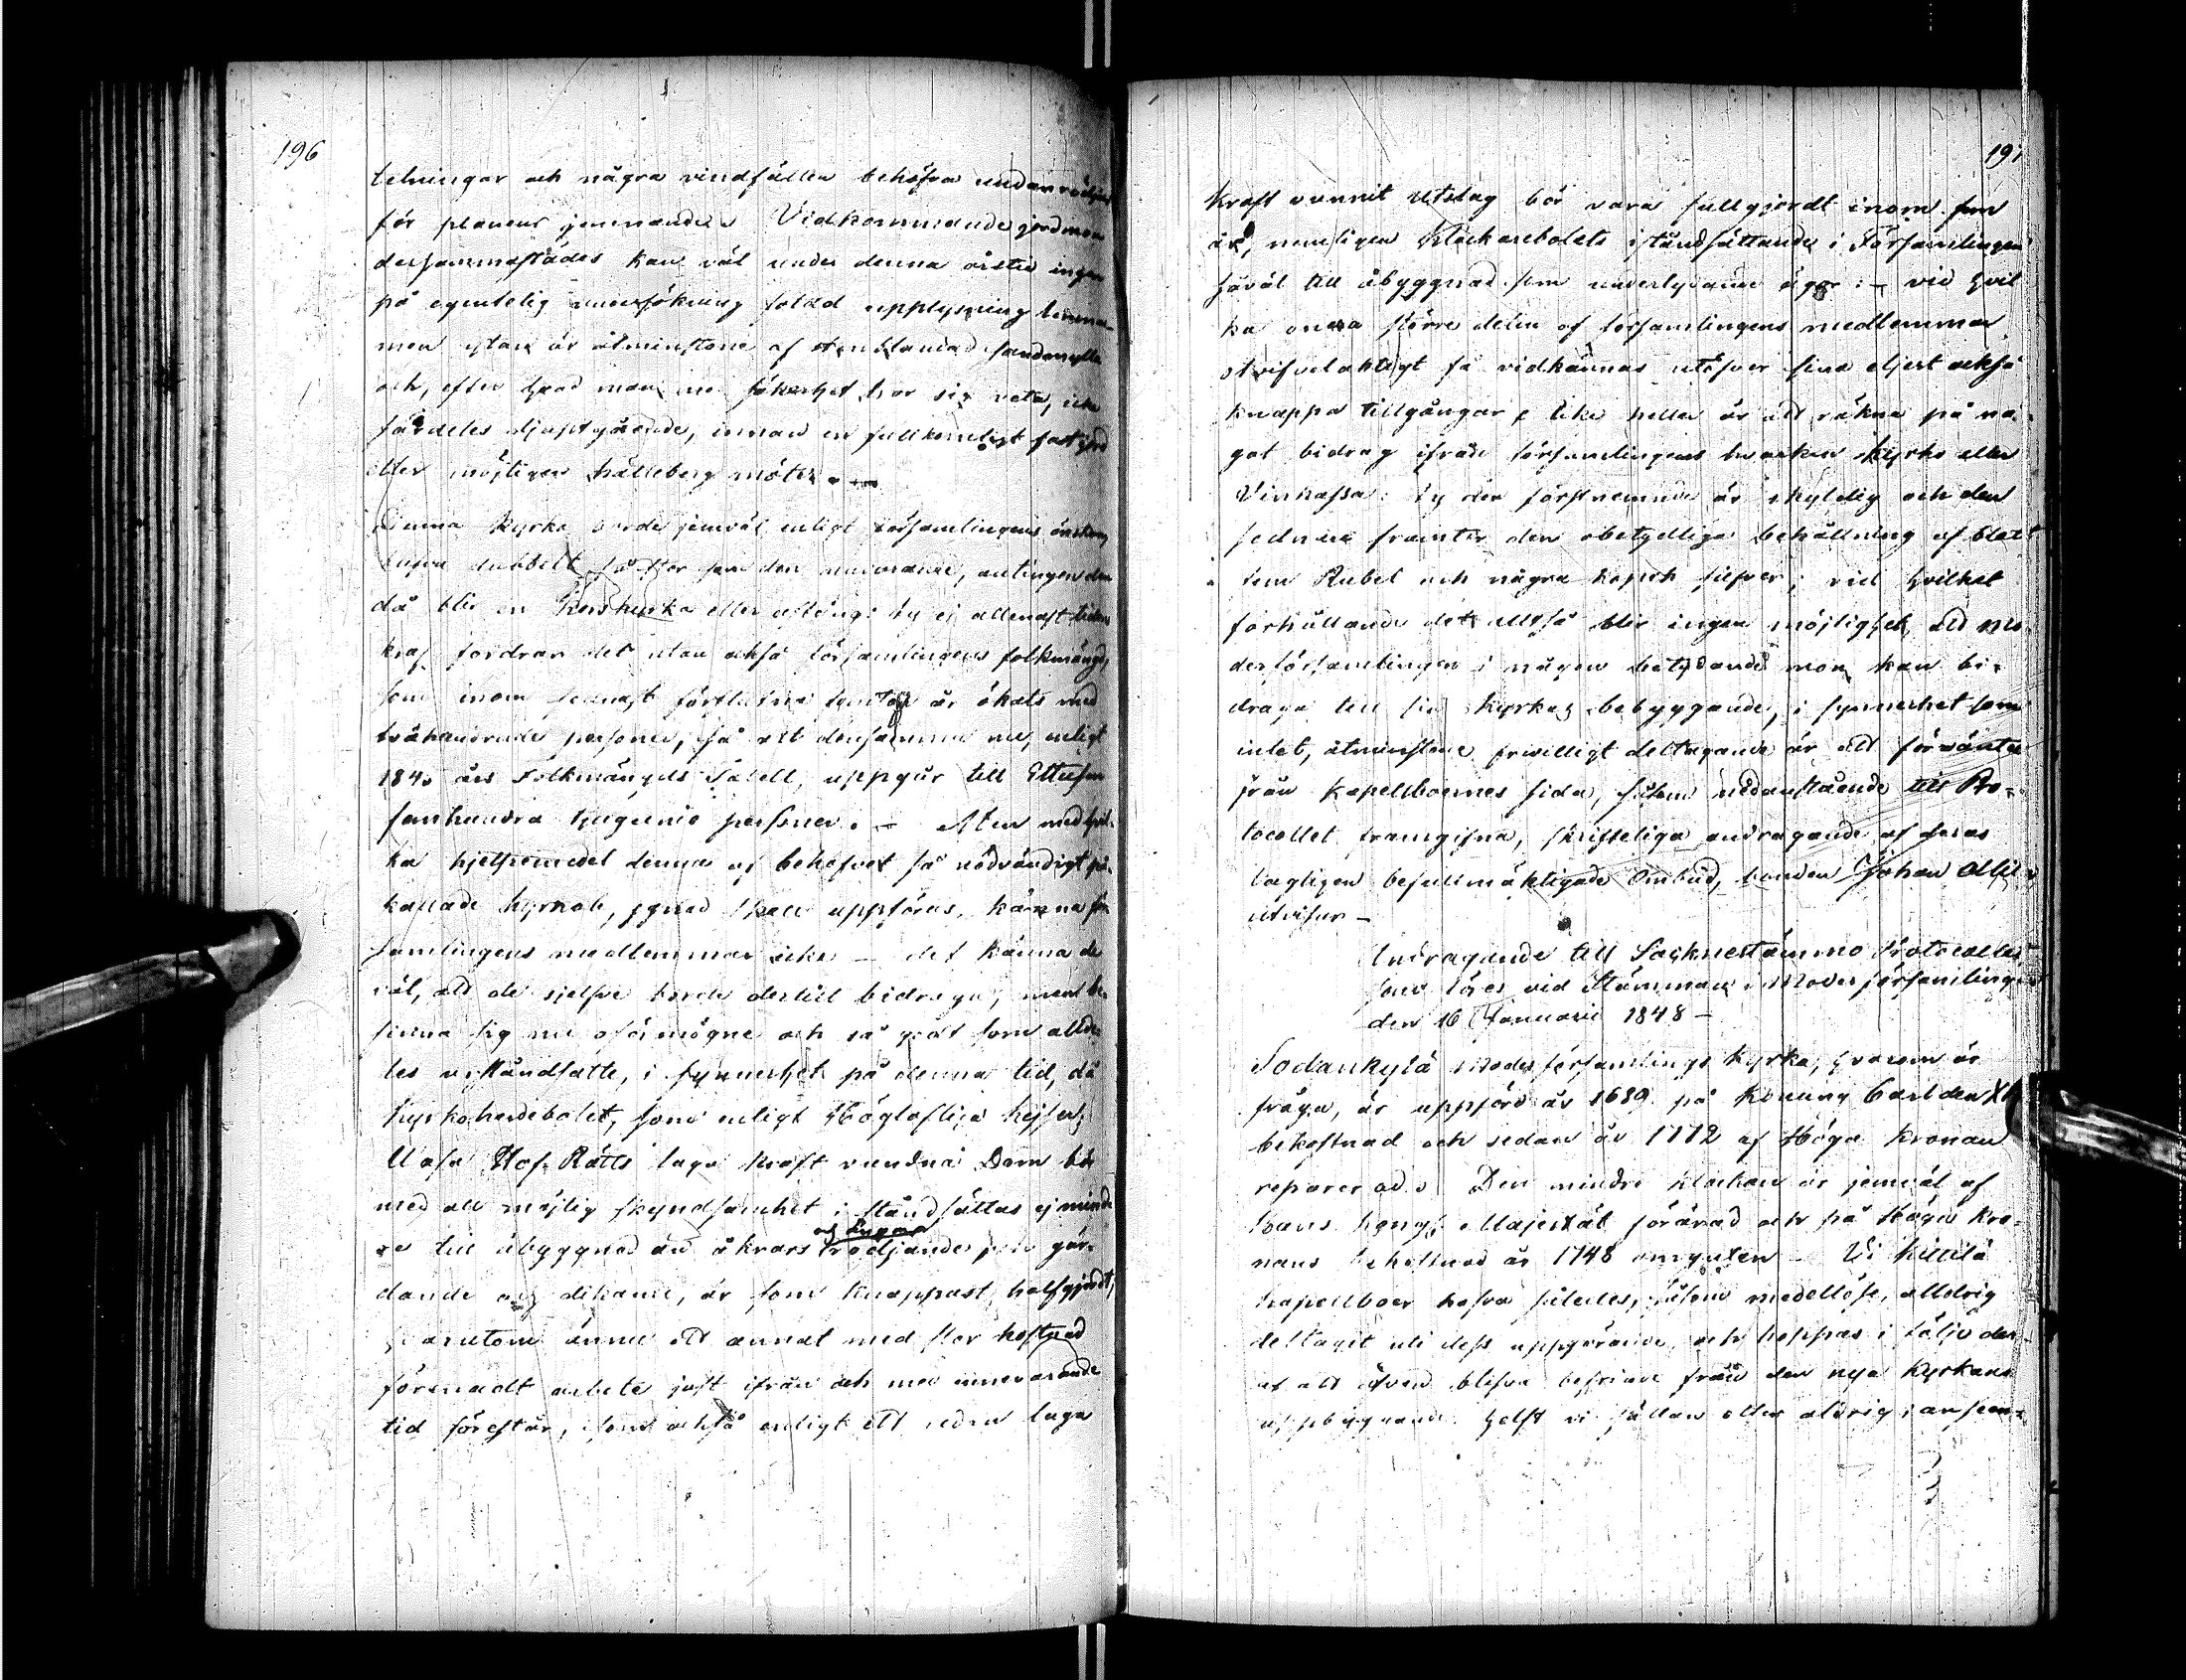 196
telningar och några vindfällen behöfva undanrödjas
för planens jemnande. Vidkommande jordmon
dersammastädes kan väl under denna årstid ingen
på egentelig undersökning solid upplysning lemnas
men ytan är åtminstone af stenblandad sandmylla
och, efter hvad man med säkerhet tror sig veta, icke
särdeles djuptgående, innan en fullkomligt fast jord
eller möjligen hälleberg möter. —
Denna Kyrka borde jemväl enligt församlingens önskan
blifva dubbelt så stor som den nuvarande, antingen den
då blir en Korskyrka eller aflång: ty ej allenast tidens
kraf fordrar det utan också församlingens folkmängd,
som inom sednast förflutne femtio år ökats med
tvåhundrade personer, så att densamma nu, enligt
1845 års Folkmängds Tabell, uppgår till Ettusen
femhundra tjugunio personer. — Men med hvil-
ka hjelpemedel denna af behofvet så nödvändigt på-
kallade kyrkobyggnad skall uppföras, känna för-
samlingens medlemmar icke — det känna de
väl, att de sjelfve borde dertill bidraga, men be-
finna sig nu oförmögne och så godt som allde-
les urståndsatte, i synnerhet på denna tid, då
Kyrkoherdebolet, som enligt Höglofliga Kejserl.
Wasa Hof-Rätts laga kraft vundna Dom bör
med all möjlig skyndsamhet i ståndsättas ej mind-
re till åbyggnad än åkrars och ängars rödjande, gär-
dande och dikande, är som knappast halfgjordt,
hvarutom ännu ett annat med stor kostnad
förenadt arbete just ifrån och med innevarande
tid förestår, som också enligt ett redan laga
197
Kraft vunnit Utslag bör vara fullgjordt inom fem
år, nemligen Klockarebolets iståndsättande i Församlingen
såväl till åbyggnad som underlydande ägor: — vid hvil-
ka onera större delen af församlingens medlemmar
otvifvelaktigt få vidkännas utöfver sina eljest också
knappa tillgångar; Icke heller är att räkna på nå-
got bidrag ifrån församlingens hvarken Kyrko eller
Vinkassa: ty den förstnemnde är skyldig och den
sednare framter den obetydliga behållning af blott
fem Rubel och några kopek silfver; vid hvilket
förhållande det alltså blir ingen möjlighet, att Mo-
derförsamlingen i någon betydande mon kan bi-
draga till sin Kyrkas bebyggande, i synnerhet som
intet, åtminstone frivilligt deltagande är att förvänta
från Kapellboernes sida, såsom nedanstående till Pro-
tocollet framgifna, skriftliga andragande af deras
lagligen befullmäktigade Ombud, bonden Johan Alli
utvisar —
Andragande till Sockenstämmo Protocollet
som föres vid Stämman i Moderförsamlingen
den 16 Januarii 1848 —
Sodankylä Moderförsamlings Kyrka, hvarom är
fråga, är uppförd år 1689 på Konung Carl den XI
bekostnad och sedan år 1772 af Höga Kronan
reparerad. Den mindre klockan är jemväl af
Hans Kongl. Majestät förärad och på Höga Kro-
nans bekostnad år 1748 omguten — Vi Kittilä
kapellboer hafva således, såsom medellöse, alldrig
deltagit uti dess uppgörande, och hoppas i följe der-
af att äfven blifva befriade från den nya Kyrkans
uppbyggande helst vi sällan eller aldrig i anseen-